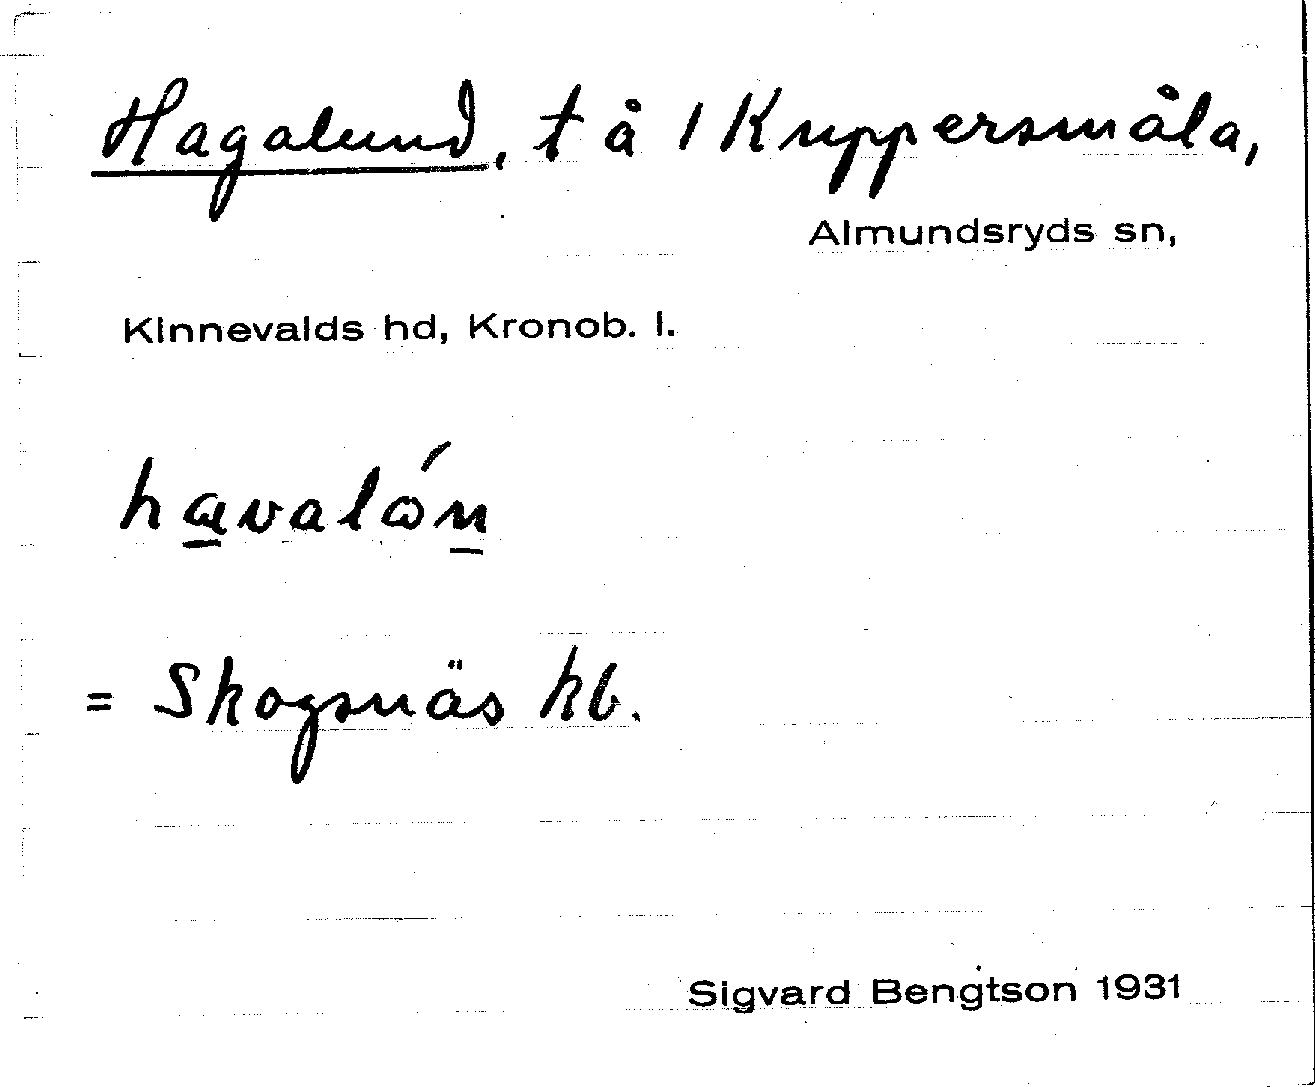 Hagalund, t å 1 Knppersmåla,
Almundsryds sn,
Kinnevalds hd, Kronob. l.
havalón
= Skogsnäs kb.
Sigvard Bengtson 1931